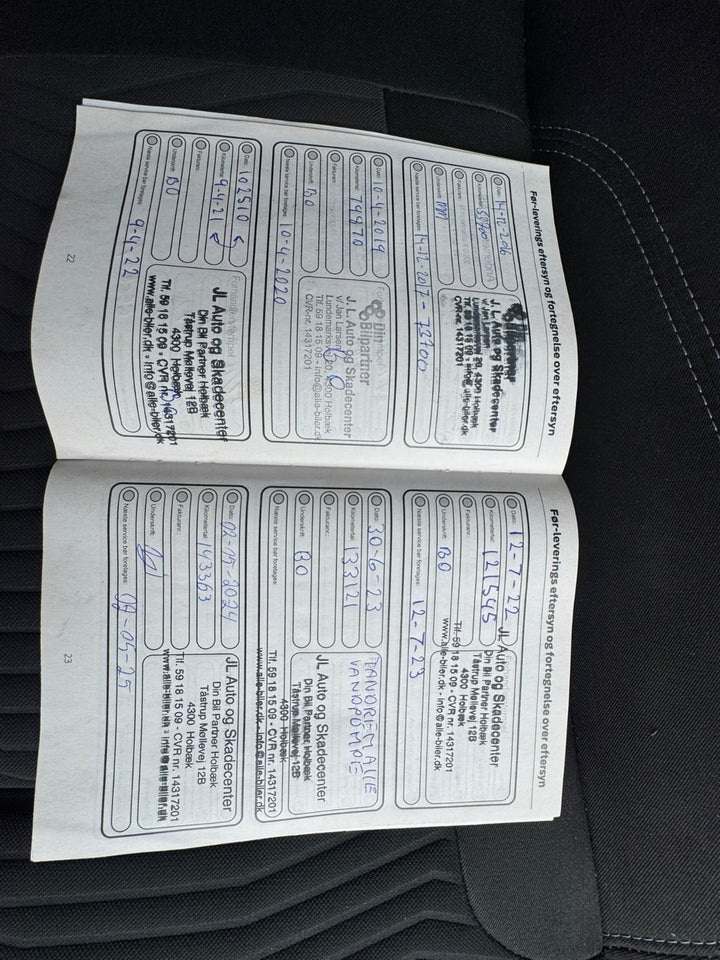 Før-leverings eftersyn og fortegnelse over eftersyn
Dato: 14-12-2016
Kilometertal:
Fakturanr.:
Underskrift:
Næste service bør foretages: 14-12-2017 - 73700
Bilpartner
J. L. Auto og Skadecenter
v/ Jan Larsen
4300 Holbæk
Tlf. 59 18 15 09 - info@alle-biler.dk
CVR-nr. 14317201
Dato: 10-4-2019
Kilometertal: 79970
Fakturanr.:
Underskrift: BO
Næste service bør foretages: 10-4-2020
Din
Bilpartner
J. L. Auto og Skadecenter
v/ Jan Larsen
4300 Holbæk
Tlf. 59 18 15 09 - info@alle-biler.dk
CVR-nr. 14317201
Dato: 102510
Kilometertal: 9-4-21
Fakturanr.:
Underskrift: BO
Næste service bør foretages: 9-4-22
Forhandlerstempel
JL Auto og Skadecenter
Din Bil Partner Holbæk
Tåstrup Møllevej 12B
4300 Holbæk
Tlf. 59 18 15 09 - CVR nr. 14317201
www.alle-biler.dk - info@alle-biler.dk
22
Før-leverings eftersyn og fortegnelse over eftersyn
Dato: 12-7-22
Kilometertal: 121545
Fakturanr.:
Underskrift: BO
Næste service bør foretages: 12-7-23
JL Auto og Skadecenter
Din Bil Partner Holbæk
Tåstrup Møllevej 12B
4300 Holbæk
Tlf. 59 18 15 09 - CVR nr. 14317201
www.alle-biler.dk - info@alle-biler.dk
Dato: 30-6-23
Kilometertal: 133121
Fakturanr.:
Underskrift: BO
Næste service bør foretages:
TANDREM
VANDPUMPE
JL Auto og Skadecenter
Din Bil Partner Holbæk
Tåstrup Møllevej 12B
4300 Holbæk
Tlf. 59 18 15 09 - CVR nr. 14317201
www.alle-biler.dk - info@alle-biler.dk
Dato: 02-05-2024
Kilometertal: 143363
Fakturanr.:
Underskrift:
Næste service bør foretages: 05-25
JL Auto og Skadecenter
Din Bil Partner Holbæk
Tåstrup Møllevej 12B
4300 Holbæk
Tlf. 59 18 15 09 - CVR nr. 14317201
www.alle-biler.dk - info@alle-biler.dk
23